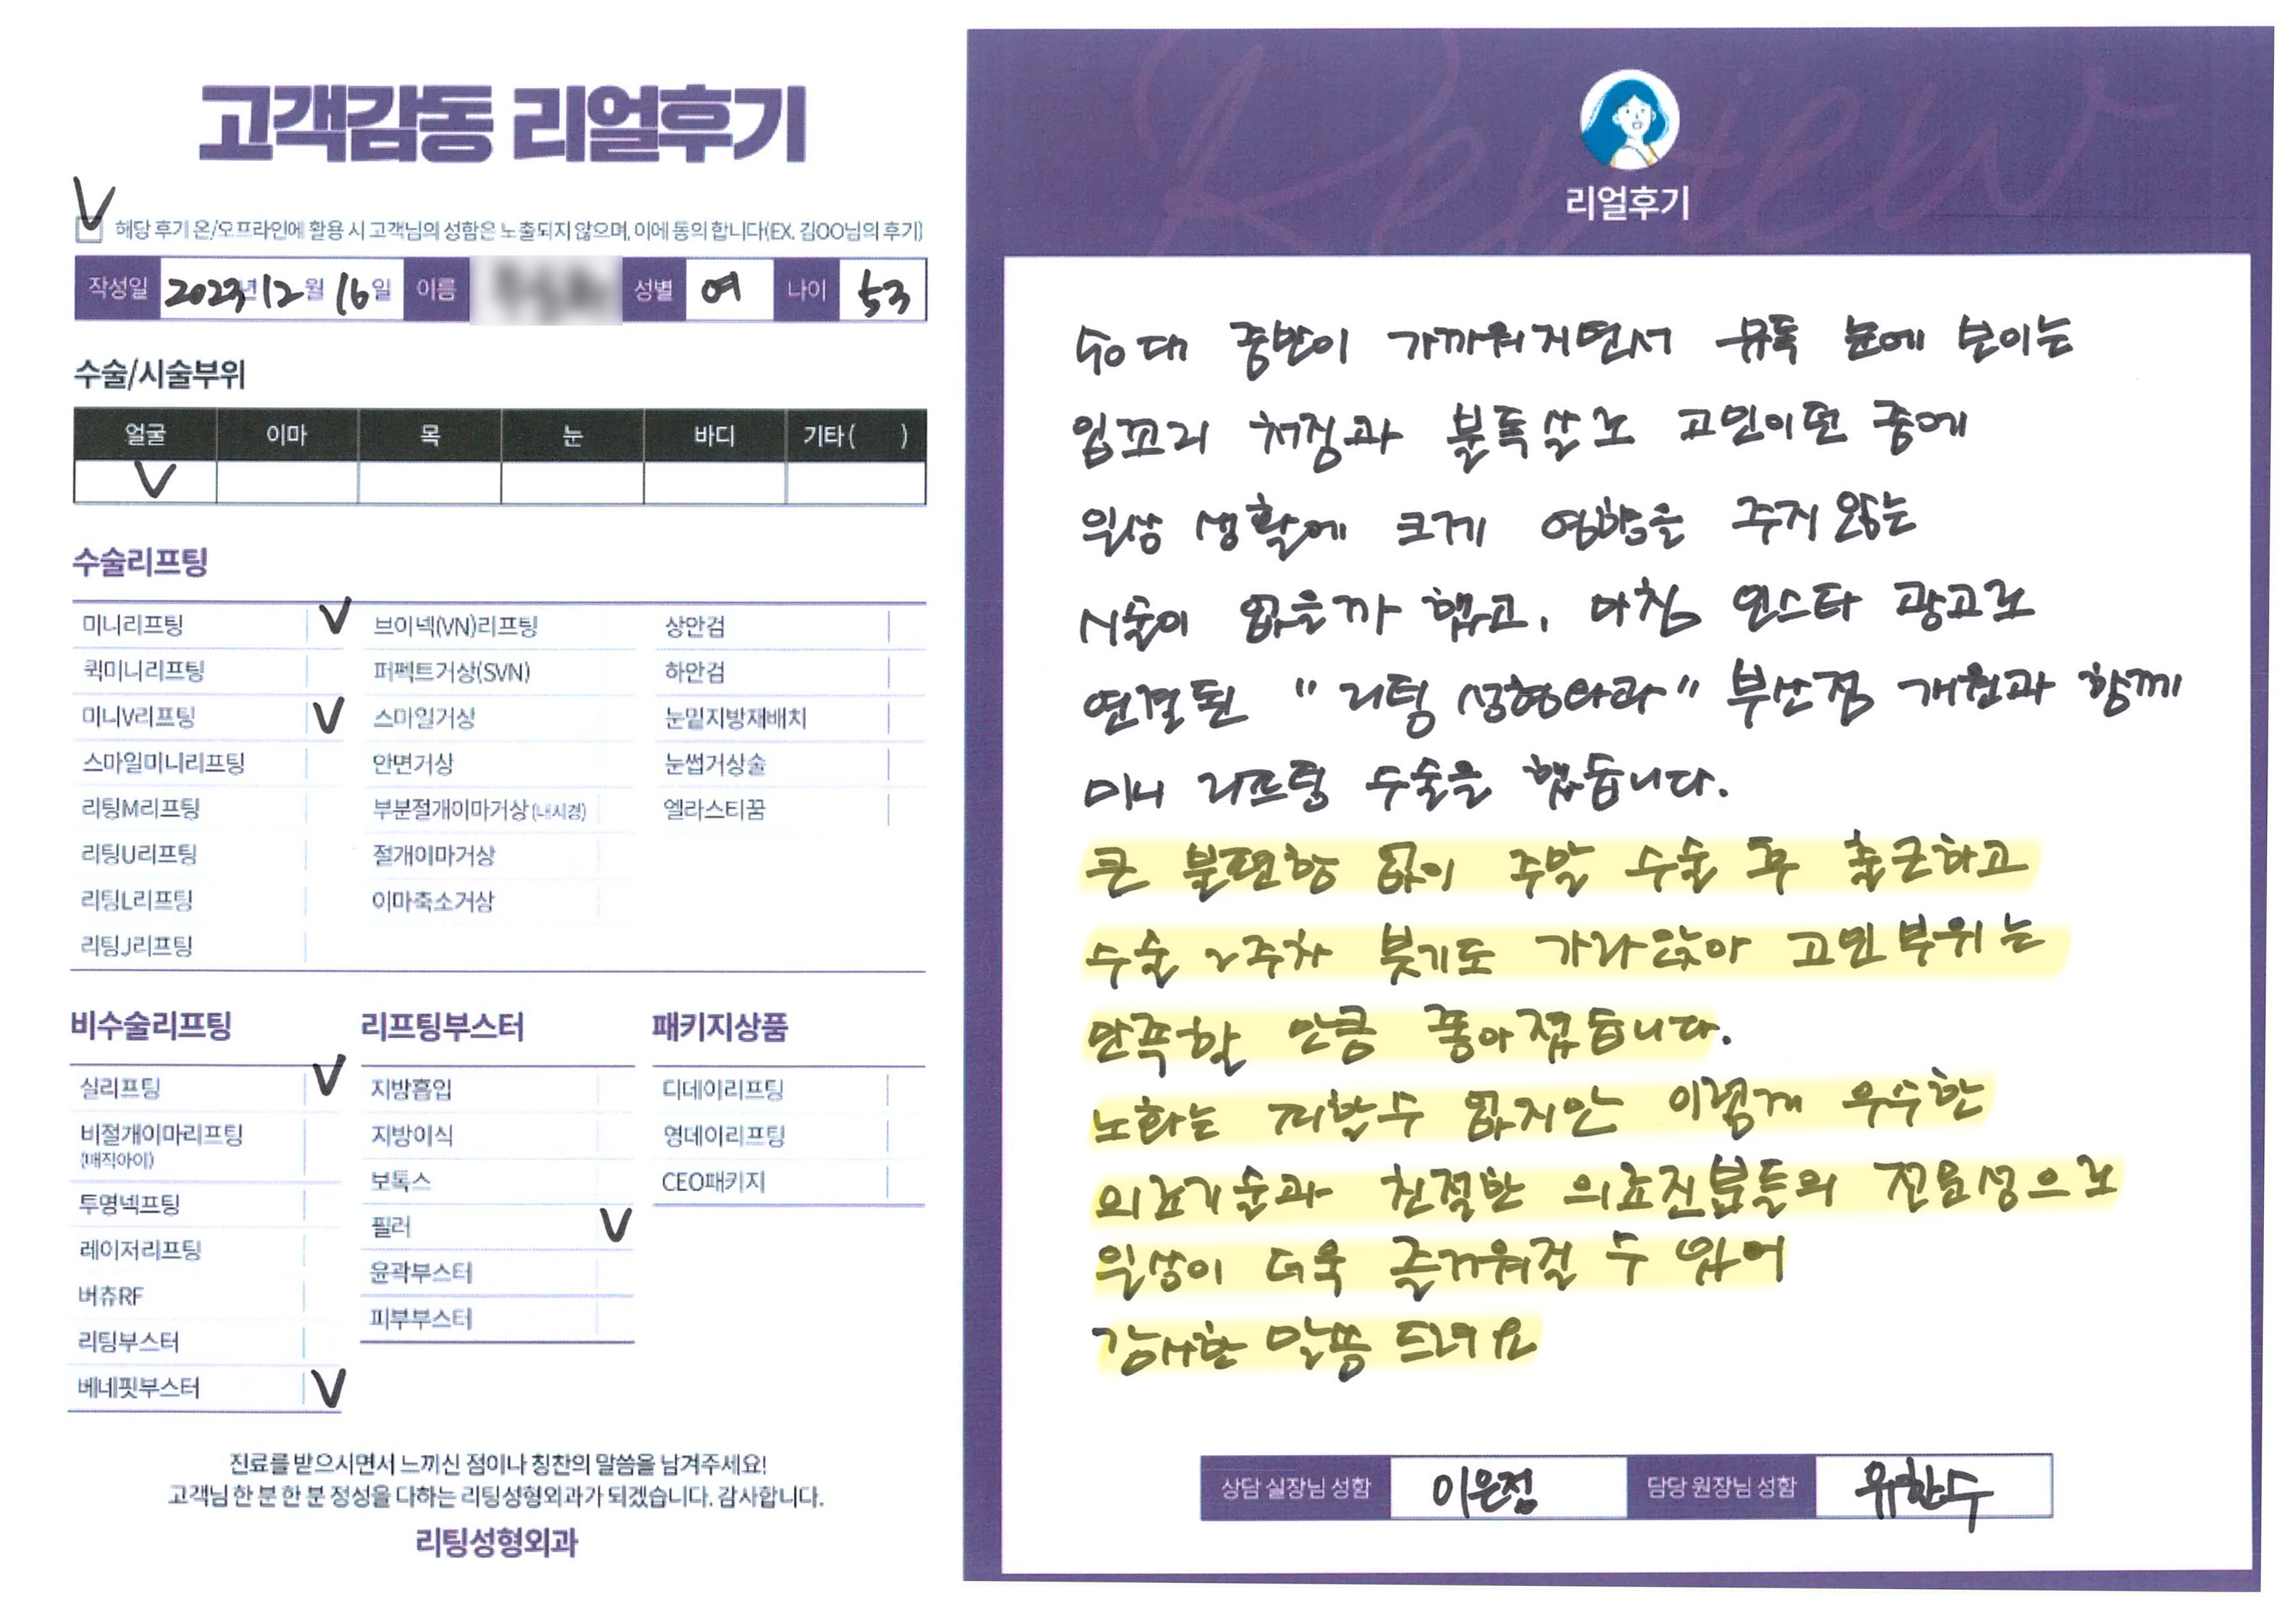 고객감동 리얼후기
해당 후기 온/오프라인에 활용 시 고객님의 성함은 노출되지 않으며, 이에 동의 합니다(EX. 김OO님의 후기)
작성일 2023년 12월 16일 이름 성별 여 나이 53
수술/시술부위
얼굴 이마 목 눈 바디 기타( )
수술리프팅
미니리프팅 브이넥(VN)리프팅 상안검
퀵미니리프팅 퍼펙트거상(SVN) 하안검
미니V리프팅 스마일거상 눈밑지방재배치
스마일미니리프팅 안면거상 눈썹거상술
리팅M리프팅 부분절개이마거상(내시경) 엘라스티꿈
리팅U리프팅 절개이마거상
리팅L리프팅 이마축소거상
리팅J리프팅
비수술리프팅 리프팅부스터 패키지상품
실리프팅 지방흡입 디데이리프팅
비절개이마리프팅 지방이식 영데이리프팅
(매직아이)
보톡스 CEO패키지
투명넥프팅 필러
레이저리프팅 윤곽부스터
버츄RF 피부부스터
리팅부스터
베네핏부스터
진료를 받으시면서 느끼신 점이나 칭찬의 말씀을 남겨주세요!
고객님 한 분 한 분 정성을 다하는 리팅성형외과가 되겠습니다. 감사합니다.
리팅성형외과
Review
리얼후기
50대 중반이 가까워지면서 유독 눈에 보이는
입꼬리 처짐과 불독살로 고민이던 중에
일상 생활에 크게 영향을 주지 않는
시술이 없을까 했고, 마침 인스타 광고로
연결된 "리팅 성형외과" 부산점 개원과 함께
미니 리프팅 수술을 했습니다.
큰 불편함 없이 주말 수술 후 출근하고
수술 2주차 붓기도 가라앉아 고민부위는
만족할 만큼 좋아졌습니다.
노화는 피할수 없지만 이렇게 우수한
의료기술과 친절한 의료진분들의 전문성으로
일상이 더욱 즐거워질 수 있어
감사한 말씀 드려요
상담 실장님 성함 이은정 담당 원장님 성함 유한수